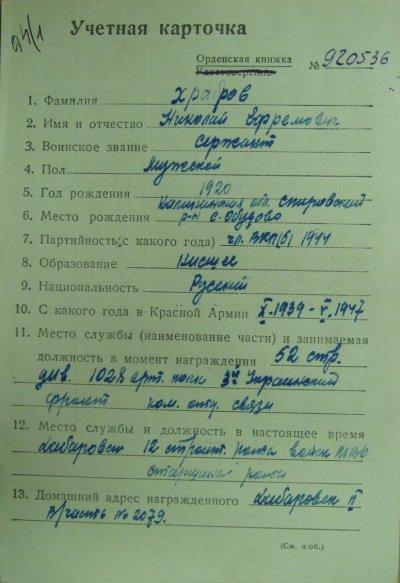 Учетная карточка
Орденская книжка
Удостоверение № 920536
1. Фамилия Храров
2. Имя и отчество Николай Ефремович
3. Воинское звание Сержант
4. Пол Мужской
5. Год рождения 1920
Калининская обл. Спировский
6. Место рождения р-н с. Обудово
7. Партийность (с какого года) чл. ВКП(б) 1944
8. Образование Нисшее
9. Национальность Русский
10. С какого года в Красной Армии X.1939 – V.1947
11. Место службы (наименование части) и занимаемая
должность в момент награждения 52 стр.
див. 1028 арт. полк 3й Украинский
фронт ком. отд. связи
12. Место службы и должность в настоящее время
Хабаровск 12 строит. рота войск МВД
старшина роты
13. Домашний адрес награжденного Хабаровск п
в/часть № 2079.
(См. н об.)